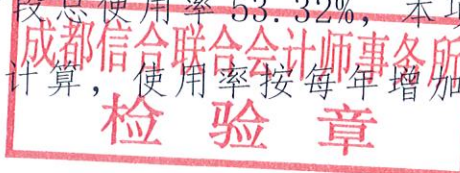 段总使用率 53.32%，本项
成都信合联合会计师事务所
计算，使用率按每年增加
检验章